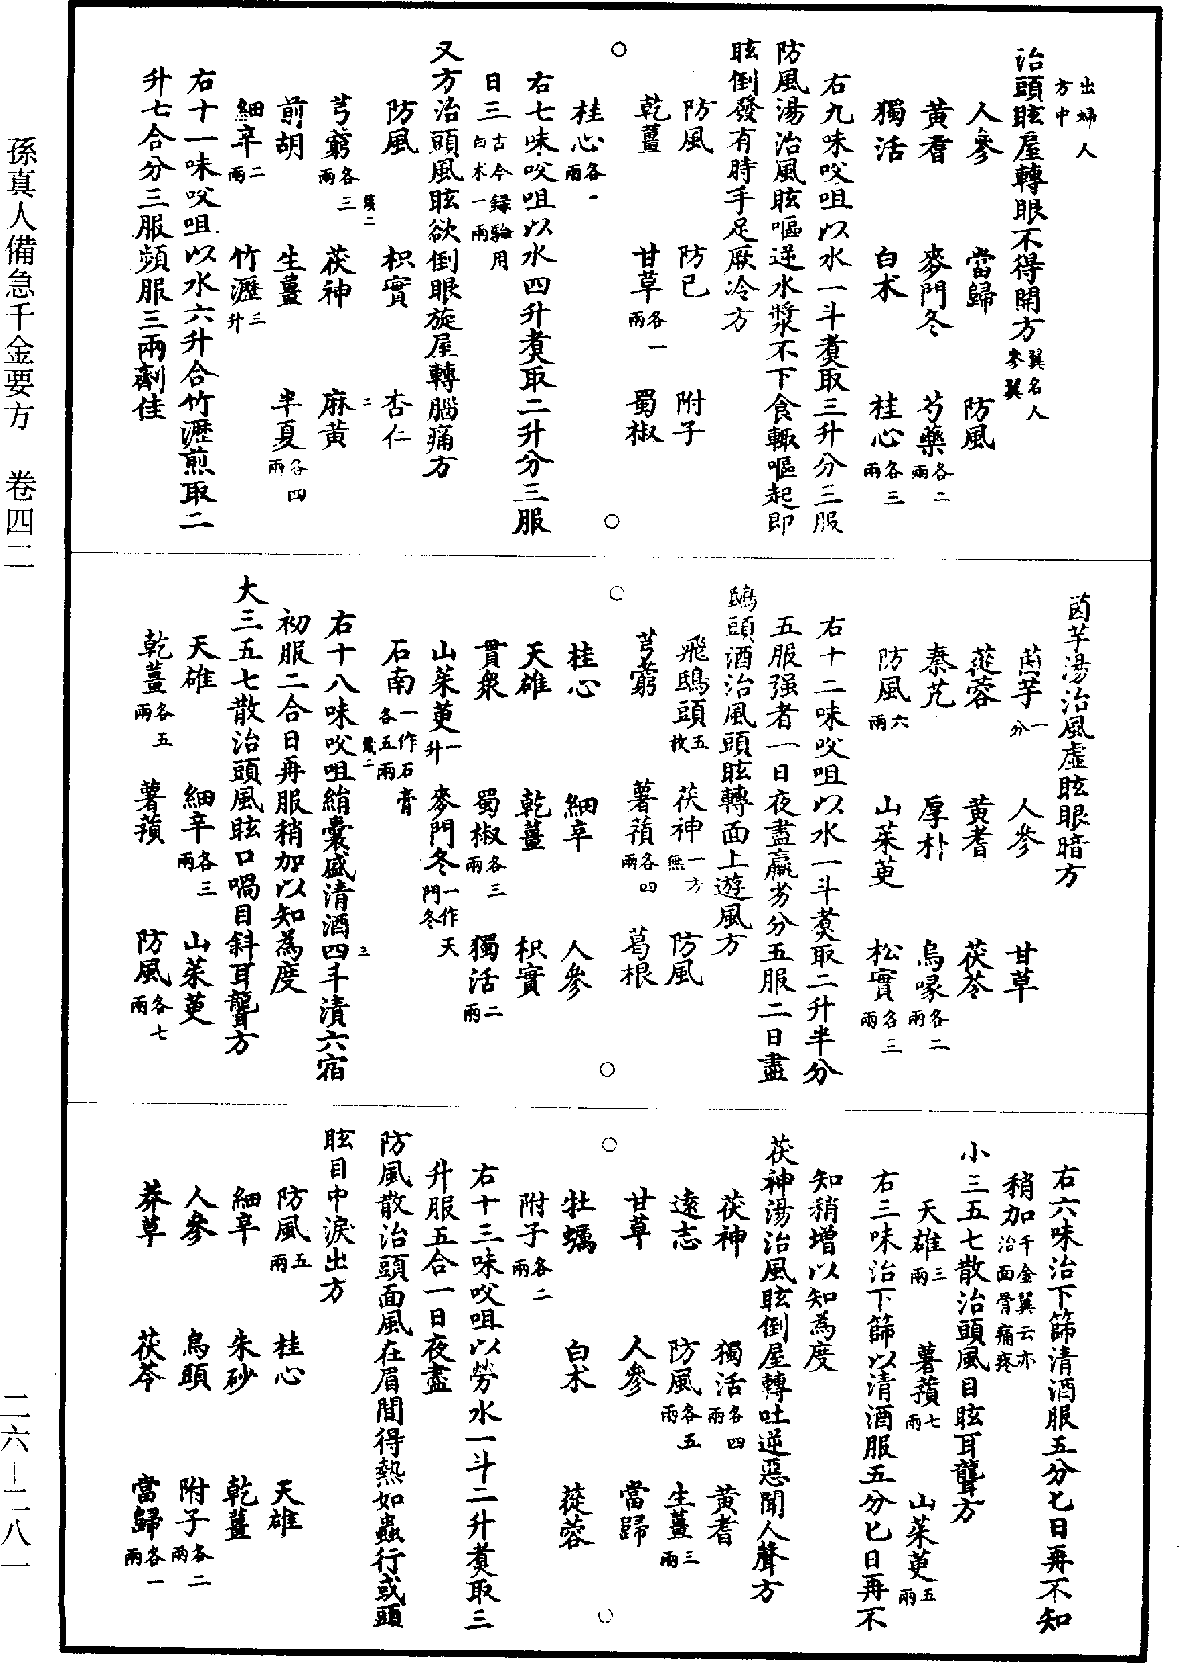 出婦人
方中
治頭眩屋轉眼不得開方 翼名人參翼
人參 當歸 防風
黃耆 麥門冬 芍藥各二兩
獨活 白朮 桂心各三兩
右九味㕮咀以水一斗煑取三升分三服
防風湯治風眩嘔逆水漿不下食輒嘔起即
眩倒發有時手足厥冷方
防風 防已 附子
乾薑 甘草各一兩 蜀椒
桂心各一兩
右七味㕮咀以水四升煑取二升分三服
日三 古今録驗用白朮一兩
又方治頭風眩欲倒眼旋屋轉腦痛方
防風 枳實 杏仁
芎藭各三兩 茯神 麻黃
前胡 生薑 半夏各四兩
細辛二兩 竹瀝三升
右十一味㕮咀以水六升合竹瀝煎取二
升七合分三服頻服三兩劑佳
茵芋湯治風虛眩眼暗方
茵芋一分 人參 甘草
蓯蓉 黃耆 茯苓
秦艽 厚朴 烏喙各二兩
防風六兩 山茱萸 松實各三兩
右十二味㕮咀以水一斗煑取二升半分
五服强者一日夜盡羸劣分五服二日盡
鴟頭酒治風頭眩轉面上遊風方
飛鴟頭五枚 茯神一方無 防風
芎藭 薯蕷各四兩 葛根
桂心 細辛 人參
天雄 乾薑 枳實
貫衆 蜀椒各三兩 獨活二兩
山茱萸一升 麥門冬一作天門冬
石南一作石膏各五兩
右十八味㕮咀絹囊盛清酒四斗漬六宿
初服二合日再服稍加以知為度
大三五七散治頭風眩口喎目斜耳聾方
天雄 細辛各三兩 山茱萸
乾薑各五兩 薯蕷 防風各七兩
右六味治下篩清酒服五分匕日再不知
稍加 千金翼云亦治面骨痛疼
小三五七散治頭風目眩耳聾方
天雄三兩 薯蕷七兩 山茱萸五兩
右三味治下篩以清酒服五分匕日再不
知稍增以知為度
茯神湯治風眩倒屋轉吐逆惡聞人聲方
茯神 獨活各四兩 黃耆
遠志 防風各五兩 生薑三兩
甘草 人參 當歸
牡蠣 白朮 蓯蓉
附子各二兩
右十三味㕮咀以勞水一斗二升煑取三
升服五合一日夜盡
防風散治頭面風在眉間得熱如蟲行或頭
眩目中淚出方
防風五兩 桂心 天雄
細辛 朱砂 乾薑
人參 烏頭 附子各二兩
莽草 茯苓 當歸各一兩
孫真人備急千金要方 卷四二
二六—二八一